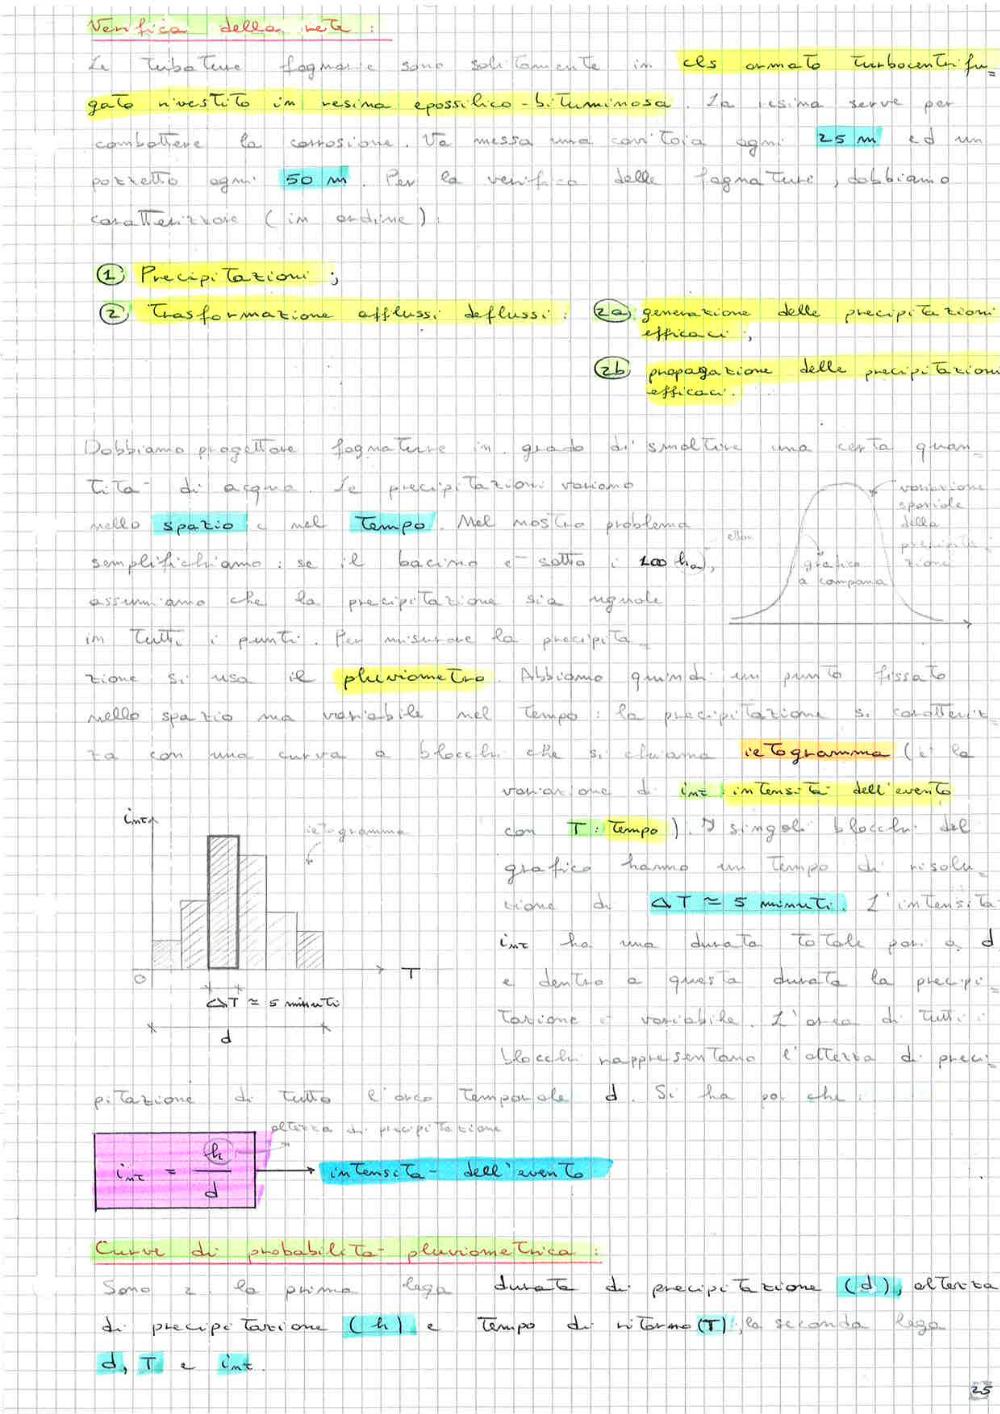 Verifica della rete :
Le tubature fognarie sono solitamente in cls armato turbocentrifu=
gato rivestito in resina epossilico-bituminosa. La resina serve per
combattere la corrosione. Va messa una caditoia ogni 25 m ed un
pozzetto ogni 50 m. Per la verifica delle fognature, dobbiamo
caratterizzare (in ordine):
1 Precipitazioni;
2 Trasformazione afflussi deflussi: 2a generazione delle precipitazioni
efficaci;
2b propagazione delle precipitazioni
efficaci.
Dobbiamo progettare fognature in grado di smaltire una certa quan=
tità di acqua. Le precipitazioni variano
nello spazio e nel tempo. Nel nostro problema
semplifichiamo: se il bacino è sotto i 100 ha,
assumiamo che la precipitazione sia uguale
in tutti i punti. Per misurare la precipita=
variazione
spaziale
della
precipita=
zione
grafico
a campana
zione si usa il pluviometro. Abbiamo quindi un punto fissato
nello spazio ma variabile nel tempo: la precipitazione si caratteriz=
za con una curva a blocchi che si chiama ietogramma (è la
variazione di int: intensità dell'evento
con T: tempo). I singoli blocchi del
grafico hanno un tempo di risolu=
zione di ΔT ≃ 5 minuti. L'intensità
int ha una durata totale pari a d
e dentro a questa durata la precipi=
tazione è variabile. L'area di tutti i
blocchi rappresentano l'altezza di preci=
int
ietogramma
0
T
ΔT ≃ 5 minuti
d
pitazione di tutto l'arco temporale d. Si ha poi che:
altezza di precipitazione
int = h/d → intensità dell'evento
Curve di probabilità pluviometrica :
Sono 2 la prima lega durata di precipitazione (d), altezza
di precipitazione (h) e tempo di ritorno (T); la seconda lega
d, T e int.
25